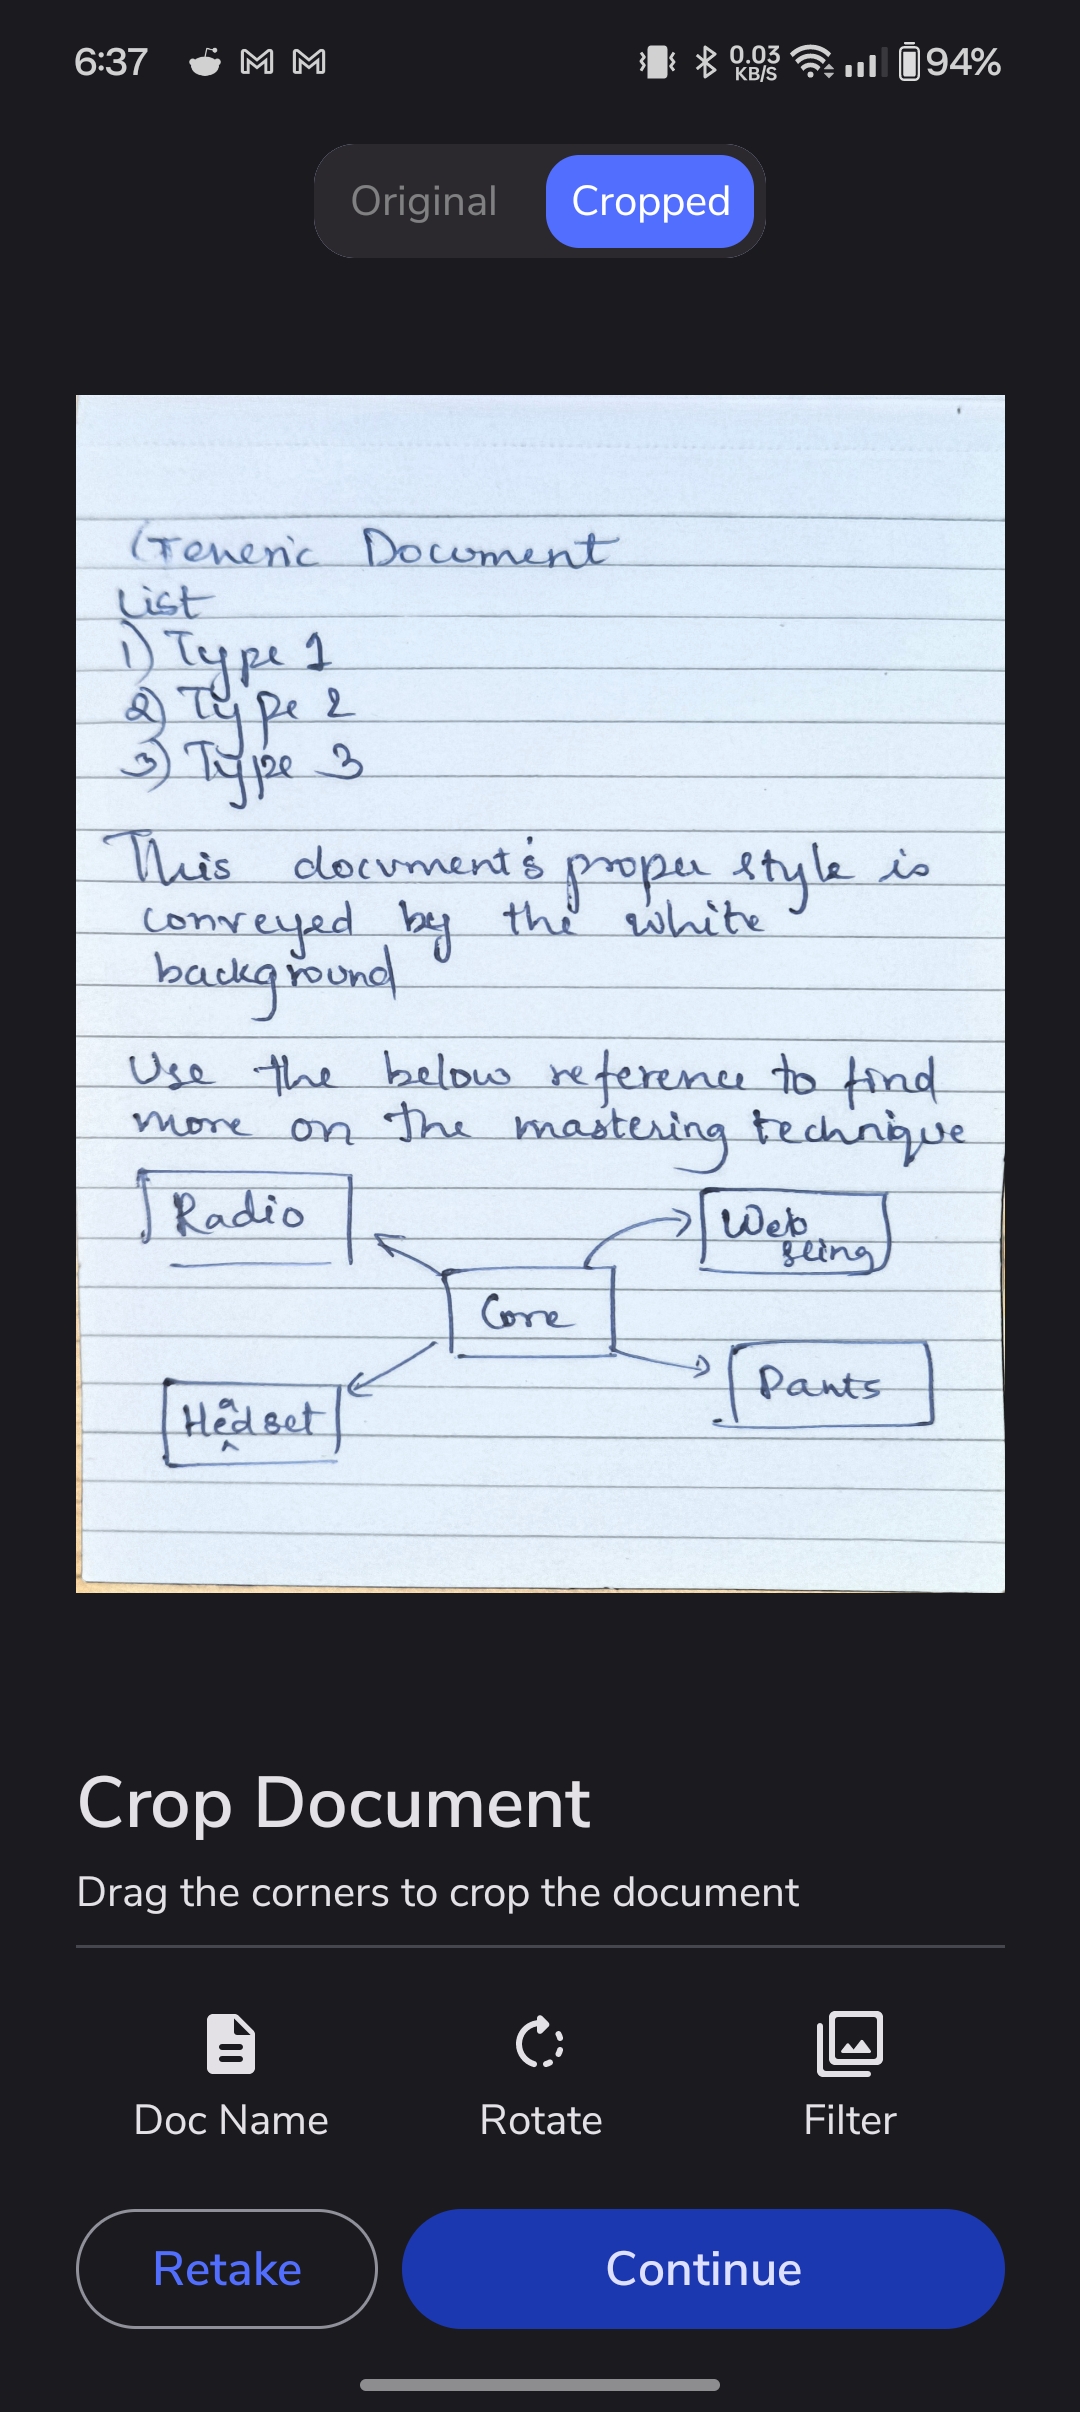 6:37
0.03
KB/S
94%
Original
Cropped
Generic Document
List
1) Type 1
2) Type 2
3) Type 3
This document's proper style is
conveyed by the white
background
Use the below reference to find
more on the mastering technique
Radio
Web
Core
Pants
Headset
Crop Document
Drag the corners to crop the document
Doc Name
Rotate
Filter
Retake
Continue